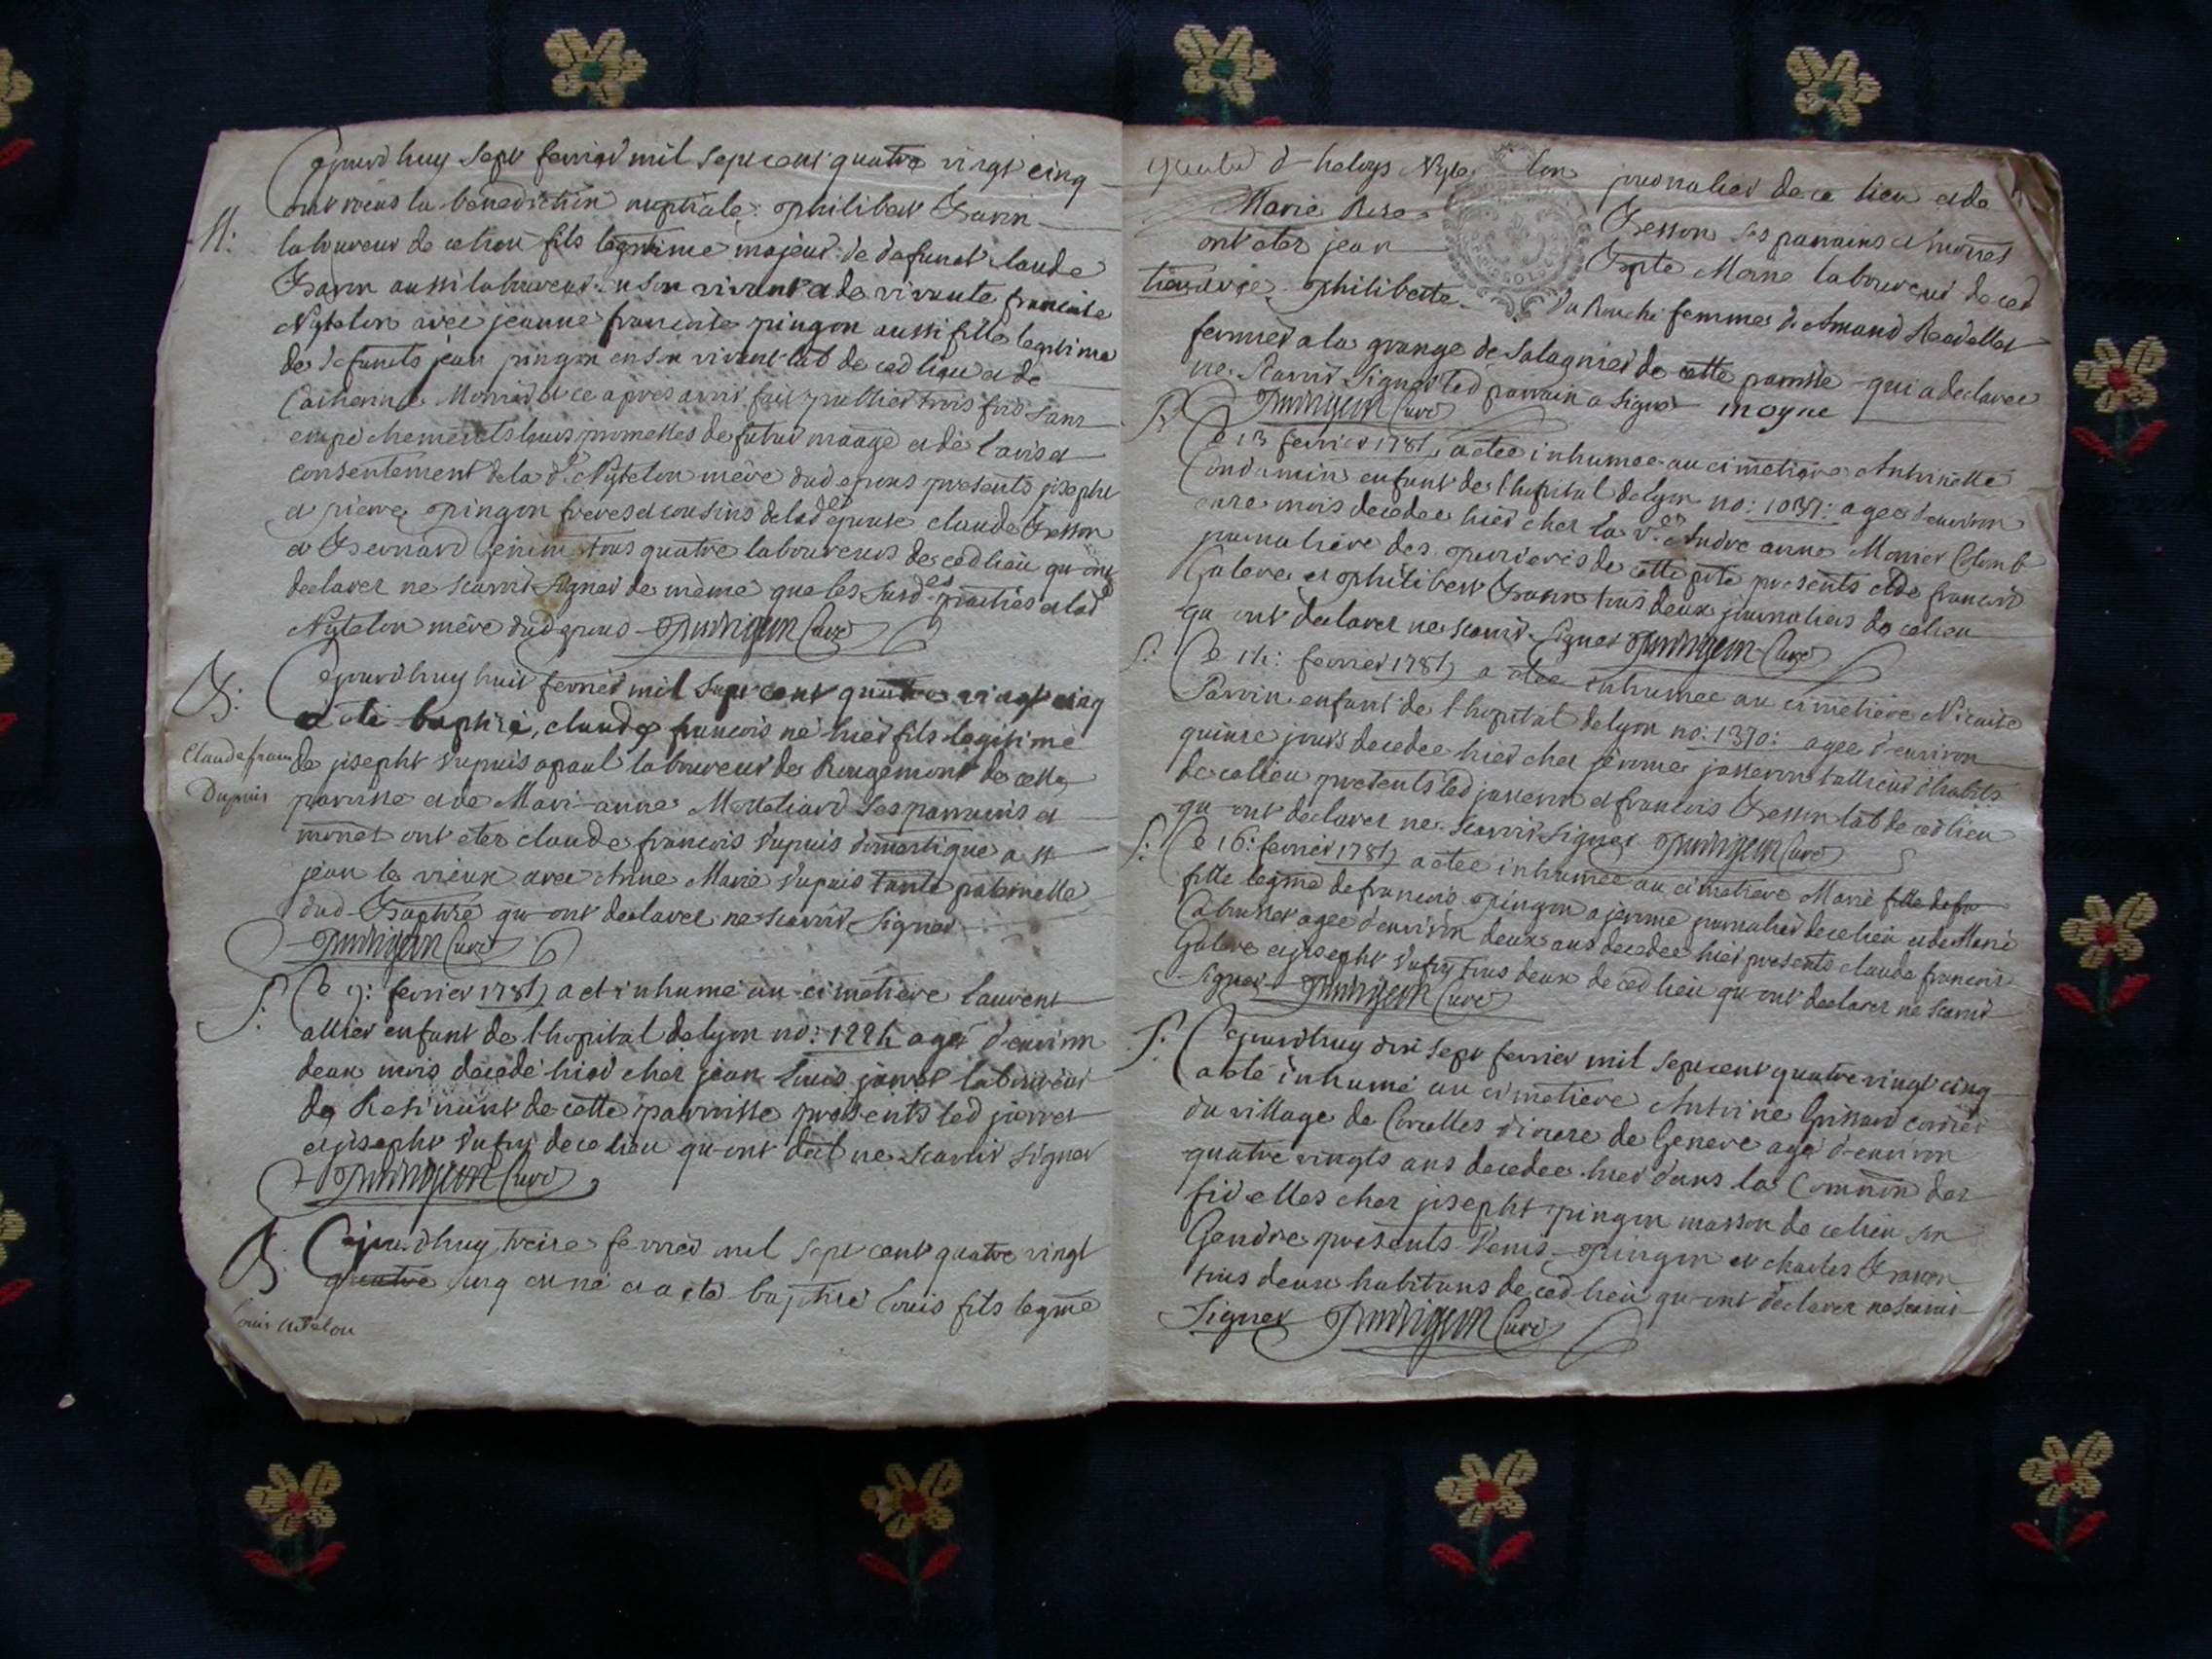 Cejourdhuy sept fevrier mil sept cent quatre vingt cinq
ont recus la bénédiction nuptiale philibert
laboureur de ce lieu fils légitime majeur de defunct claude
aussi laboureur en son vivant et de vivante francoise
Nytelon avec jeanne francoise pingon aussi fille legitime
de defunts jean pingon en son vivant lab de ced lieu et de
Catherine et ce apres avoir fait publier trois fois sans
empechements leurs promesses de futur et de l'avis et
consentement de la de Nytelon mère dud epous presents joseph
et pierre pingon freres et cousins de lad epouse claude Besson
et Bernard tous quatre laboureurs de ced lieu qu ont
declarer ne scavoir signer de même que les susd parties et lad
Nytelon mère dud epous Curé
B:
Claude francois
Dupuis
Cejourdhuy huit fevrier mil sept cent quatre vingt cinq
a été baptisé, claude francois né hier fils légitime
de joseph dupuis apaul laboureur de Rougemont de cette
paroisse et de Mari-anne ses parrains et
ont eter claude francois dupuis domestique a st
jean le vieux avec Anne Marie dupuis tante paternelle
dud Baptisé qu ont declarer ne scavoir signer
Curé
S:
Ce 9: fevrier 1785 a eté inhumé au cimetière laurent
allier enfant de l hopital de lyon no: 1224 agé d'environ
deux mois decedé hier cher jean louis jarret laboureur
de de cette parroisse presents led jarret
et joseph dufuy de ce lieu qu ont decl ne scavoir signer
Curé
B.
louis Nitelon
Cejourdhuy treise fevrier mil sept cent quatre vingt
quatre cinq est né et a été baptisé louis fils legme
d heloys Nytelon journalier de ce lieu et de
Marie Rose Besson ses parrains et
ont eter jean Bpte Moine laboureur de ced
lieu avec philiberte femme d Amand
fermier a la grange de Salagnier de cette paroisse qui a declarer
ne scavoir signer led parrain a signer moyne
Curé
S:
Ce 13 fevrier 1785 a etee inhumee au cimetière Anthoinette
Condamin enfant de l hopital de lyon no: 1037: agee d'environ
onze mois decedee hier cher la ve Andre anne
journaliere des de cette presents de francois
Galere et philibert tous deux journaliers de ce lieu
qu ont declarer ne scavoir signer Curé
S:
Ce 14: fevrier 1785 a etee inhumee au cimetière Nicaise
Parrin enfant de l hopital de lyon no: 1370: agee d'environ
quinse jours decedee hier cher jerome tallieur d'habits
de ce lieu presents led et francois Besson lab de ced lieu
qu ont declarer ne scavoir signer Curé
S:
Ce 16: fevrier 1785 a etee inhumee au cimetière Marie fille de
fille legme de francois pingon a jerome journalier de ce lieu et de Marie
agee d'environ deux ans decedee hier presents claude francois
Galere et joseph dufuy tous deux de ced lieu qu ont declarer ne scavoir
signer Curé
S:
Cejourdhuy dix sept fevrier mil sept cent quatre vingt cinq
a été inhumé au cimetiere Antoine
du village de diocese de Geneve agé d'environ
quatre vingts ans decedee hier dans la Commion des
fidelles cher joseph pingon masson de ce lieu son
Gendre presents Denis pingon et charles
tous deux habitans de ced lieu qu ont declarer ne scavoir
signer Curé